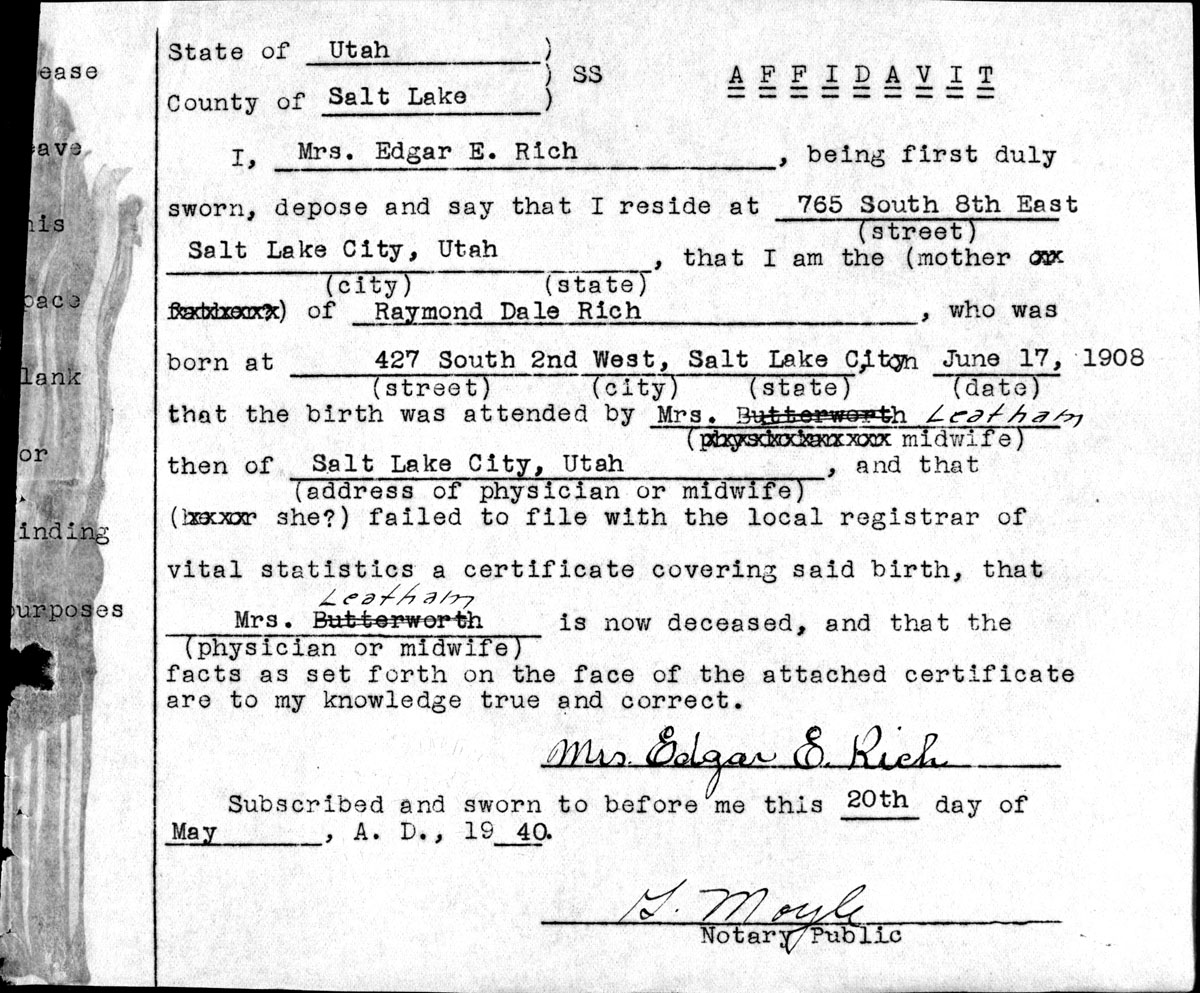 State of Utah )
) SS A F F I D A V I T
County of Salt Lake )
I, Mrs. Edgar E. Rich, being first duly
sworn, depose and say that I reside at 765 South 8th East
(street)
Salt Lake City, Utah, that I am the (mother or
(city) (state)
father?) of Raymond Dale Rich, who was
born at 427 South 2nd West, Salt Lake City, on June 17, 1908
(street) (city) (state) (date)
that the birth was attended by Mrs. Butterworth Leatham
(physician or midwife)
then of Salt Lake City, Utah, and that
(address of physician or midwife)
(he or she?) failed to file with the local registrar of
vital statistics a certificate covering said birth, that
Leatham
Mrs. Butterworth is now deceased, and that the
(physician or midwife)
facts as set forth on the face of the attached certificate
are to my knowledge true and correct.
Mrs. Edgar E. Rich
Subscribed and sworn to before me this 20th day of
May, A. D., 19 40.
G. Moyle
Notary Public
ease
eave
his
pace
lank
or
inding
urposes